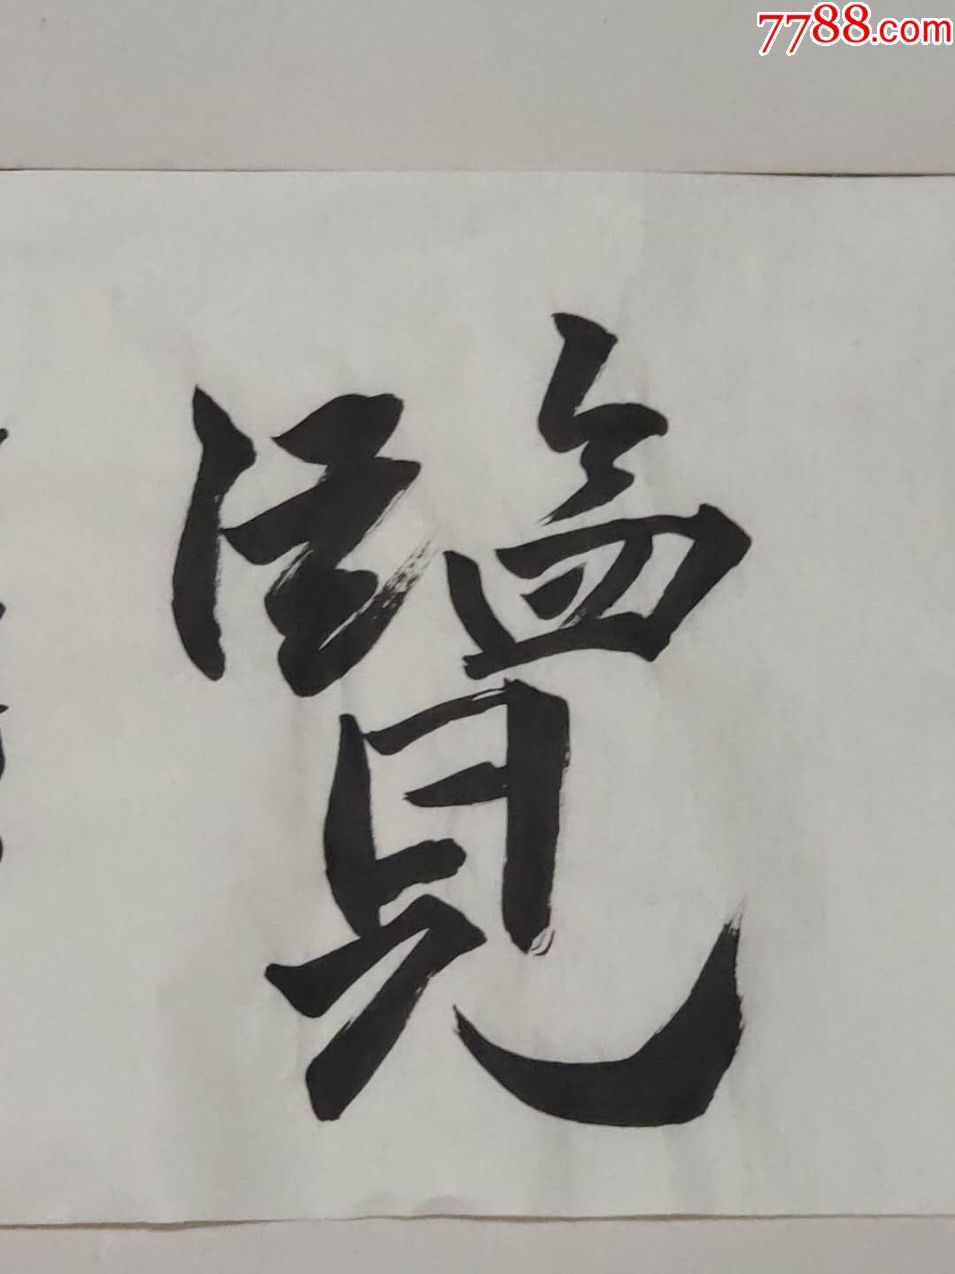 7788.com
覽